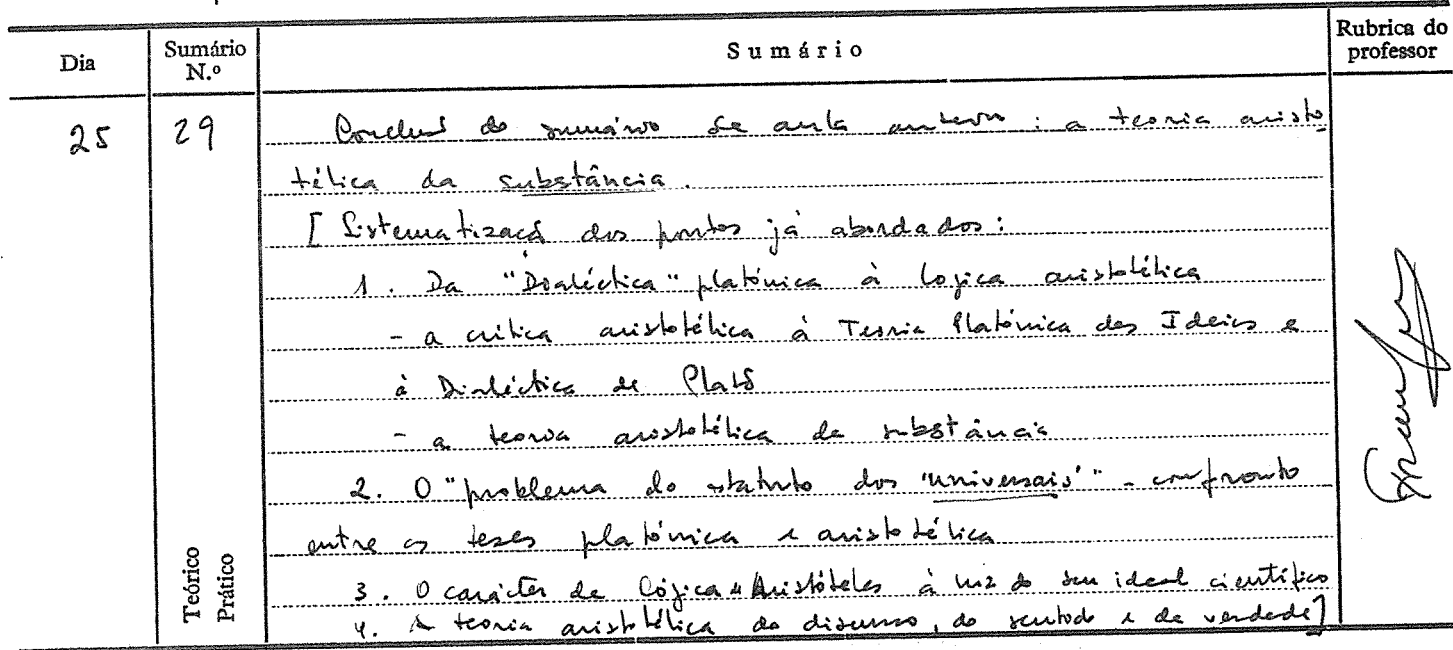 Dia Sumário N.º Sumário Rubrica do professor
25 29 Conclusão do sumário da aula anterior : a teoria aristo
télica da substância.
[ Sistematização dos pontos já abordados :
1. Da "Dialéctica" platónica à logica aristotélica
- a crítica aristotélica à Teoria Platónica das Ideias e
à Dialéctica de Platão
- a teoria aristotélica da substância
2. O "problema do estatuto dos 'universais'" - confronto
entre as teses platónica e aristotélica
3. O carácter da Lógica de Aristóteles à luz do seu ideal científico
4. A teoria aristotélica do discurso, do sentido e da verdade]
Teórico
Prático